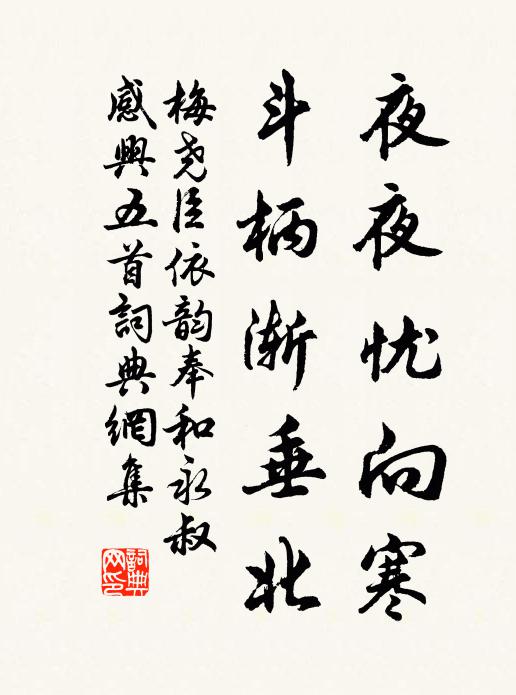 夜夜忧向寒
斗柄渐垂北
梅尧臣依韵奉和永叔
感興五首詞典網集
詞典
网印